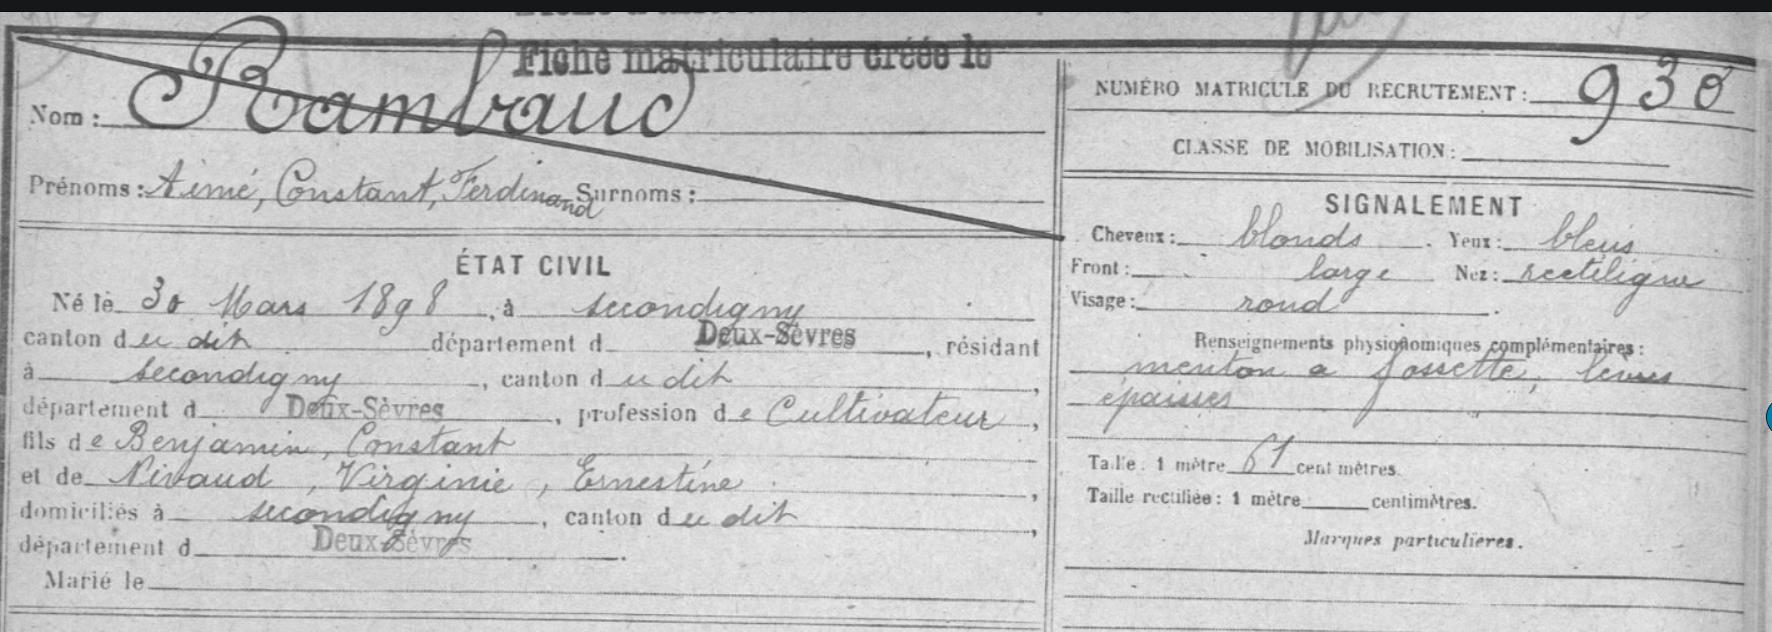 Fiche matriculaire créée le
Nom : Rambaud
Prénoms : Aimé, Constant, Ferdinand Surnoms :
ÉTAT CIVIL
Né le 30 Mars 1898, à secondigny
canton du dit département d Deux-Sèvres, résidant
à secondigny, canton du dit,
département d Deux-Sèvres, profession de Cultivateur,
fils de Benjamin, Constant
et de Nivaud, Virginie, Ernestine,
domiciliés à secondigny, canton du dit,
département d Deux-Sèvres.
Marié le
NUMÉRO MATRICULE DU RECRUTEMENT : 930
CLASSE DE MOBILISATION :
SIGNALEMENT
Cheveux : blonds. Yeux : bleus
Front : large Nez : rectiligne
Visage : rond.
Renseignements physionomiques complémentaires :
menton a fossette, levres
épaisses
Taille : 1 mètre 61 centimètres.
Taille rectifiée : 1 mètre centimètres.
Marques particulières.